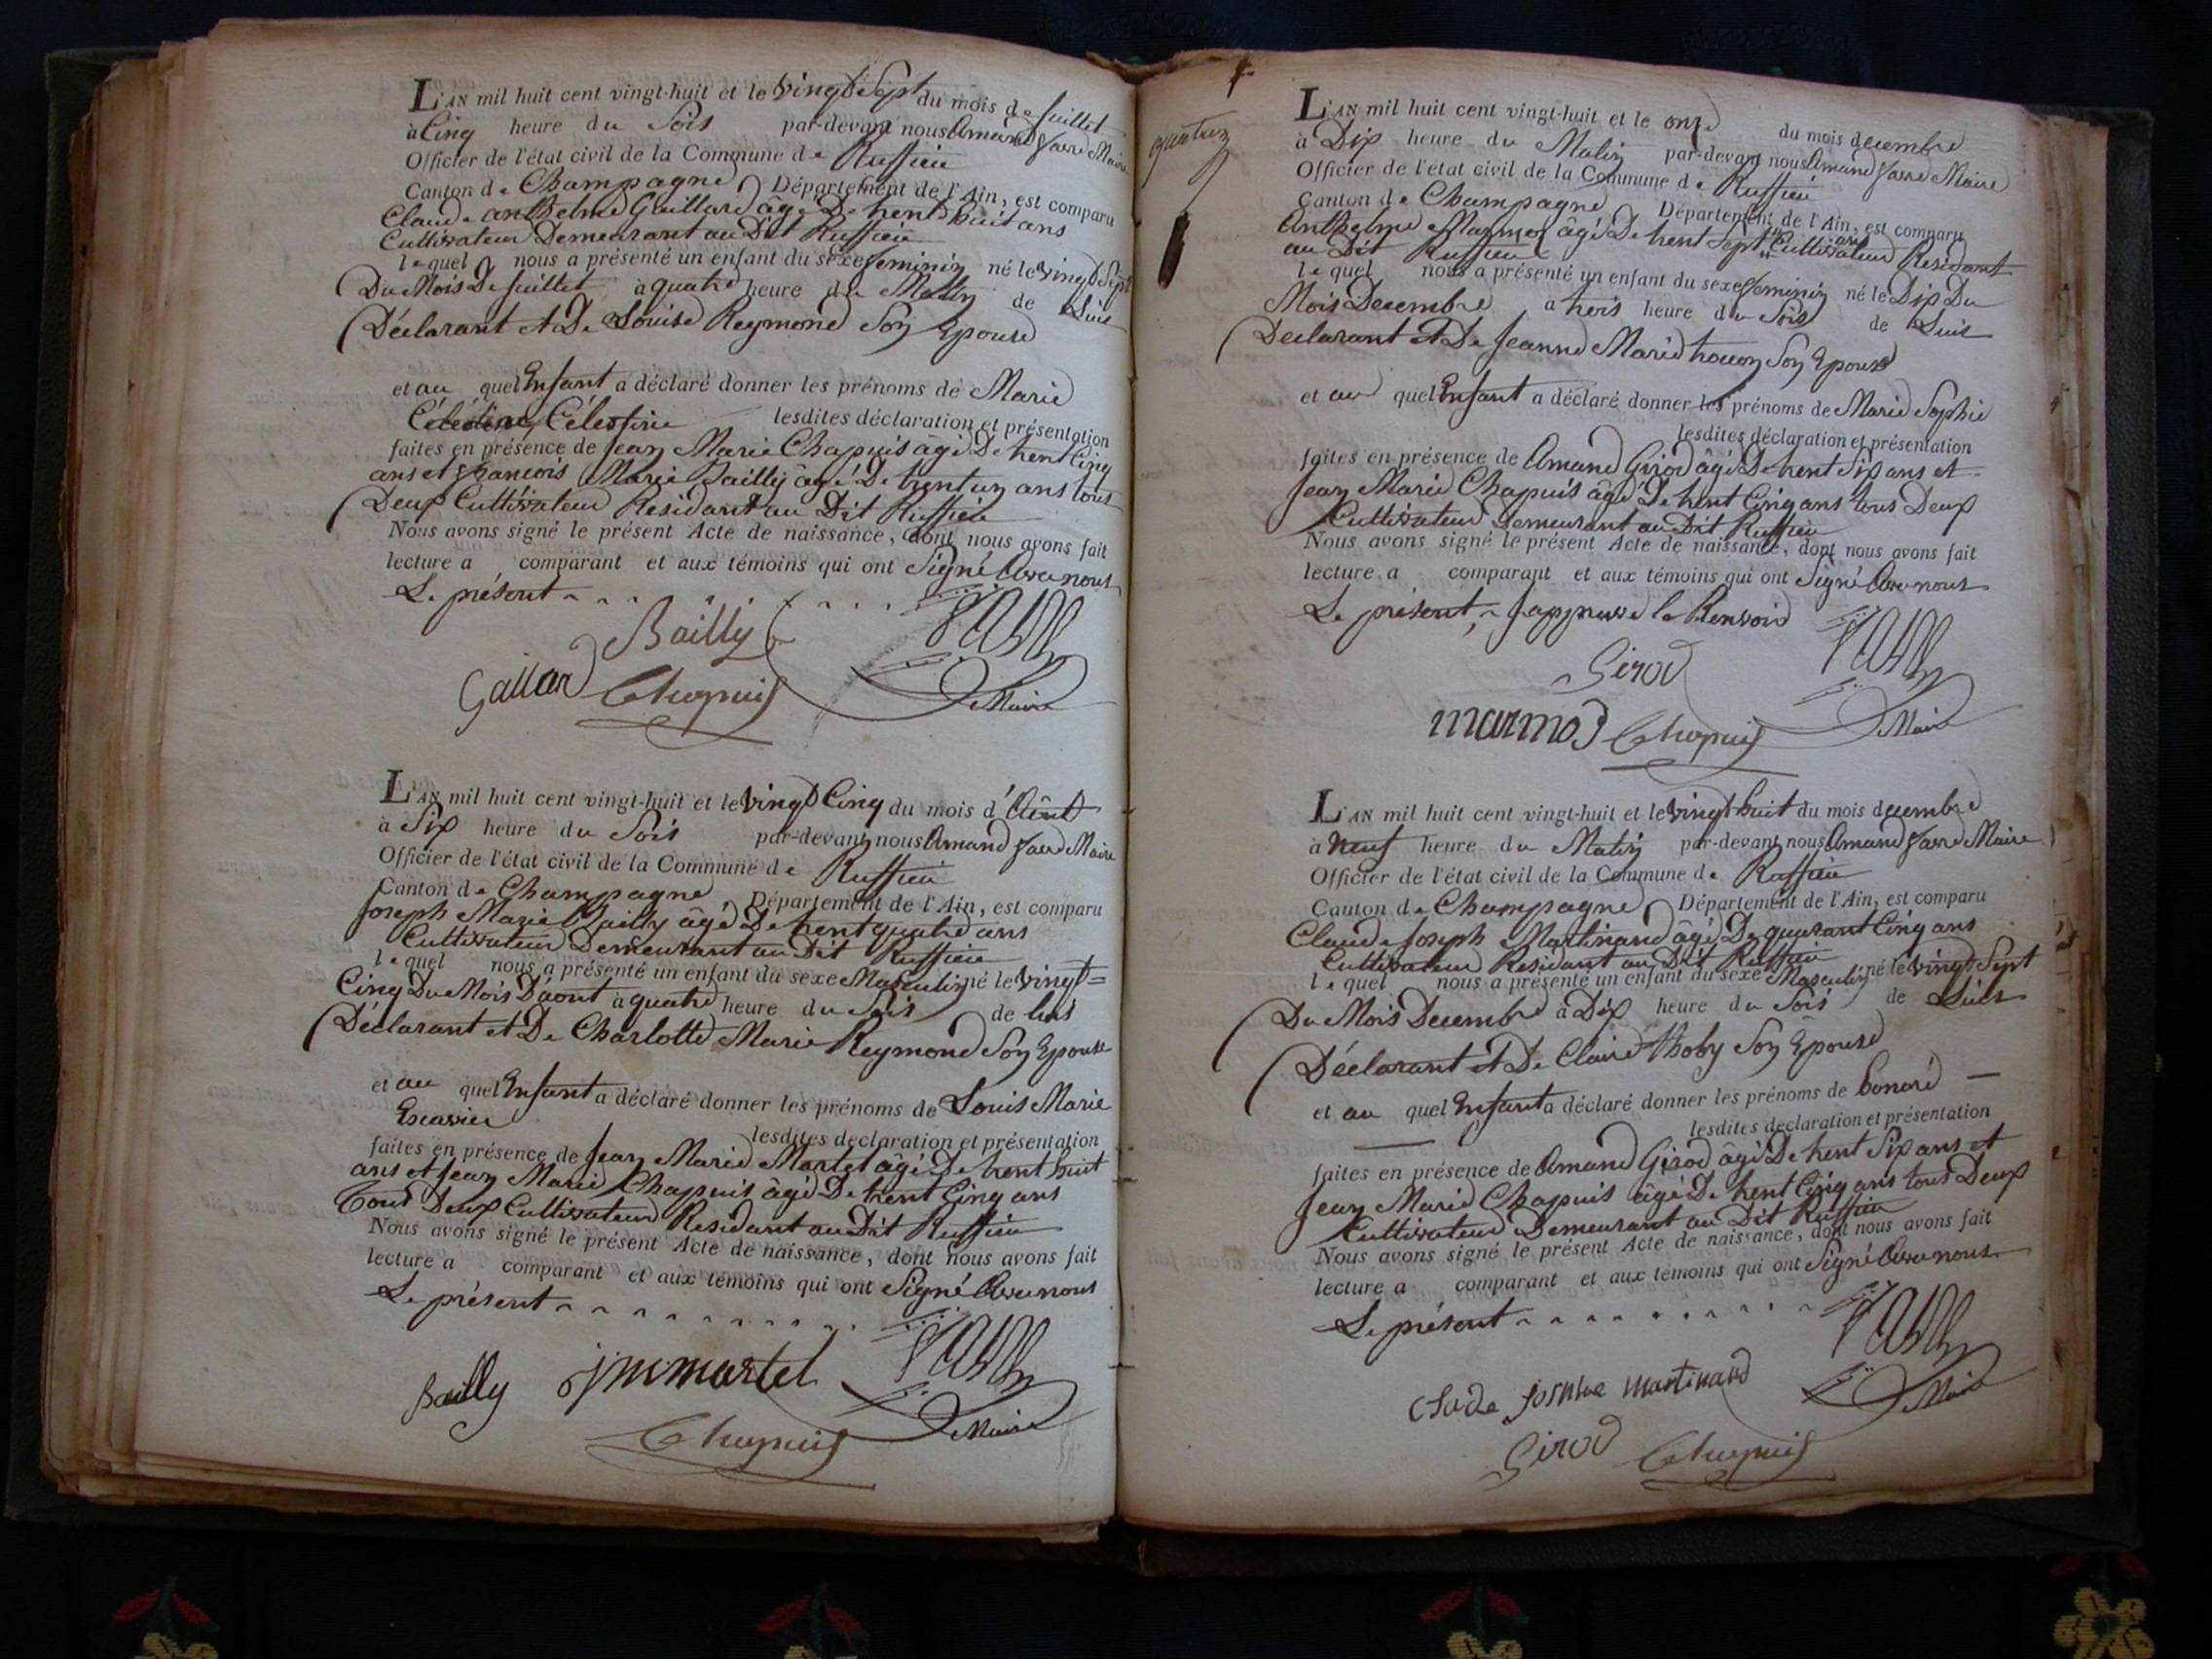 L'AN mil huit cent vingt-huit et le vingt Sept du mois de Juillet
à Cinq heure du Soir par-devant nous Amand favre Maire
Officier de l'état civil de la Commune de Ruffieu
Canton de Champagne Département de l'Ain, est comparu
Claude anthelme Gaillard âgé De trent huit ans
Cultivateur Demeurant au Dit Ruffieu
lequel nous a présenté un enfant du sexe feminin né le vingt Sept
Du Mois De Juillet à quatre heure du Matin de Luis
Déclarant et De Louise Reymond Son Epouse
et au quel Enfant a déclaré donner les prénoms de Marie
Célestine, Célestine lesdites déclaration et présentation
faites en présence de Jean Marie Chapuis âgé De trent Cinq
ans et francois Marie Bailly âgé De trent un ans tous
Deux Cultivateur Residant au Dit Ruffieu
Nous avons signé le présent Acte de naissance, dont nous avons fait
lecture a comparant et aux témoins qui ont Signé Avec nous
Le présent
Bailly
Gallard Chapuis Maire
L'AN mil huit cent vingt-huit et le vingt Cinq du mois d'Août
à Six heure du Soir par-devant nous Amand favre Maire
Officier de l'état civil de la Commune de Ruffieu
Canton de Champagne Département de l'Ain, est comparu
Joseph Marie Bailly âgé De trent quatre ans
Cultivateur Demeurant au Dit Ruffieu
lequel nous a présenté un enfant du sexe Masculin né le Vingt=
Cinq Du Mois D'aout à quatre heure du Soir de luis
Déclarant et De Charlotte Marie Reymond Son Epouse
et au quel Enfant a déclaré donner les prénoms de Louis Marie
lesdites declaration et présentation
faites en présence de Jean Marie Martel âgé De trent huit
ans et Jean Marie Chapuis âgé De trent Cinq ans
Tous Deux Cultivateur Residant au Dit Ruffieu
Nous avons signé le présent Acte de naissance, dont nous avons fait
lecture a comparant et aux témoins qui ont Signé Avec nous
Le présent
Bailly jm martel
Chapuis Maire
quatux
L'AN mil huit cent vingt-huit et le onze du mois decembre
à Dix heure du Matin par-devant nous Amand favre Maire
Officier de l'état civil de la Commune de Ruffieu
Canton de Champagne Département de l'Ain, est comparu
Anthelme Marmod âgé De trent Sept ans Cultivateur Residant
au Dit Ruffieu
lequel nous a présenté un enfant du sexe feminin né le Dix Du
Mois Decembre à trois heure du Soir de Luis
Declarant et De Jeanne Marie Son Epouse
et au quel Enfant a déclaré donner les prénoms de Marie Sophie
lesdites déclaration et présentation
faites en présence de Amand Girod âgé De trent Six ans et
Jean Marie Chapuis âgé De trent Cinq ans tous Deux
Cultivateur Demeurant au Dit Ruffieu
Nous avons signé le présent Acte de naissance, dont nous avons fait
lecture a comparant et aux témoins qui ont Signé Avec nous
Le présent, Jappruve le Renvoid
Girod
marmod Chapuis Maire
L'AN mil huit cent vingt-huit et le vingt huit du mois decembre
à neuf heure du Matin par-devant nous Amand favre Maire
Officier de l'état civil de la Commune de Ruffieu
Canton de Champagne Département de l'Ain, est comparu
Claude Joseph Martinand âgé De quarant Cinq ans
Cultivateur Residant au Dit Ruffieu
lequel nous a présenté un enfant du sexe Masculin né le vingt Sept
Du Mois Decembre à Dix heure du Soir de Luis
Déclarant et De Claire thoby Son Epouse
et au quel Enfant a déclaré donner les prénoms de honoré
lesdites declaration et présentation
faites en présence de Amand Girod âgé De trent Six ans et
Jean Marie Chapuis âgé De trent Cinq ans tous Deux
Cultivateur Demeurant au Dit Ruffieu
Nous avons signé le présent Acte de naissance, dont nous avons fait
lecture a comparant et aux témoins qui ont Signé Avec nous
Le présent
martinand
Girod Chapuis Maire